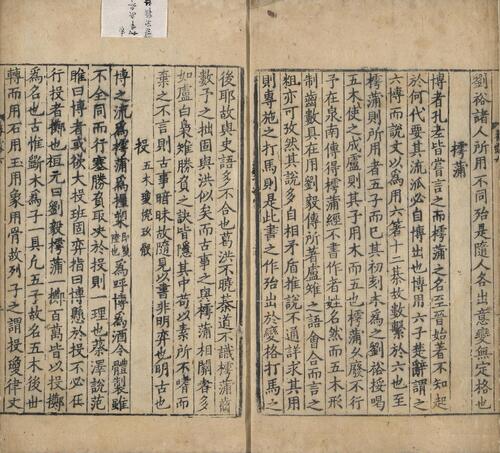 劉裕諸人所用不同殆是隨人各出意變無定格也
樗蒲
博者孔老皆嘗言之而樗蒲之名至晉始著不知起
於何代要其流派必自博出也博用六子楚辭謂之
六博而說文以為用六箸十二棊故數繫於六也至
樗蒲則所用者五子而已其初刻木為之劉裕挼喝
五木使之成盧則其子用木而五也樗蒲久廢不行
予在泉南傳得樗蒲經不書作者姓名然而五木形
制齒數具在用劉毅傳所著盧雉之語會合而言之
粗亦可攷然其說多自相矛盾推說不通詳求其用
則專施之打馬則是此書之作殆出於變格打馬之
後耶故與史語多不合也葛洪不曉棊道不識樗蒲齒
數予之拙固與洪似矣而古事之與樗蒲相關者多
如盧白梟雉勝負之訣皆隱其中苟以素所不嗜而
棄之不言則古事暗昧故隨見以書非明弈也明古也
投 五木瓊橩玖骰
博之流為樗蒲為握槊即雙陸也為呼博為酒令體製雖
不全同而行塞勝負取决於投則一理也蔡澤說范
雎曰博者或欲大投班固弈指曰博懸於投不必在
行投者擲也桓元曰劉毅樗蒲一擲百萬皆以投擲
為名也古惟斲木為子一具凡五子故名五木後世
轉而用石用玉用象用骨故列子之謂投瓊律文